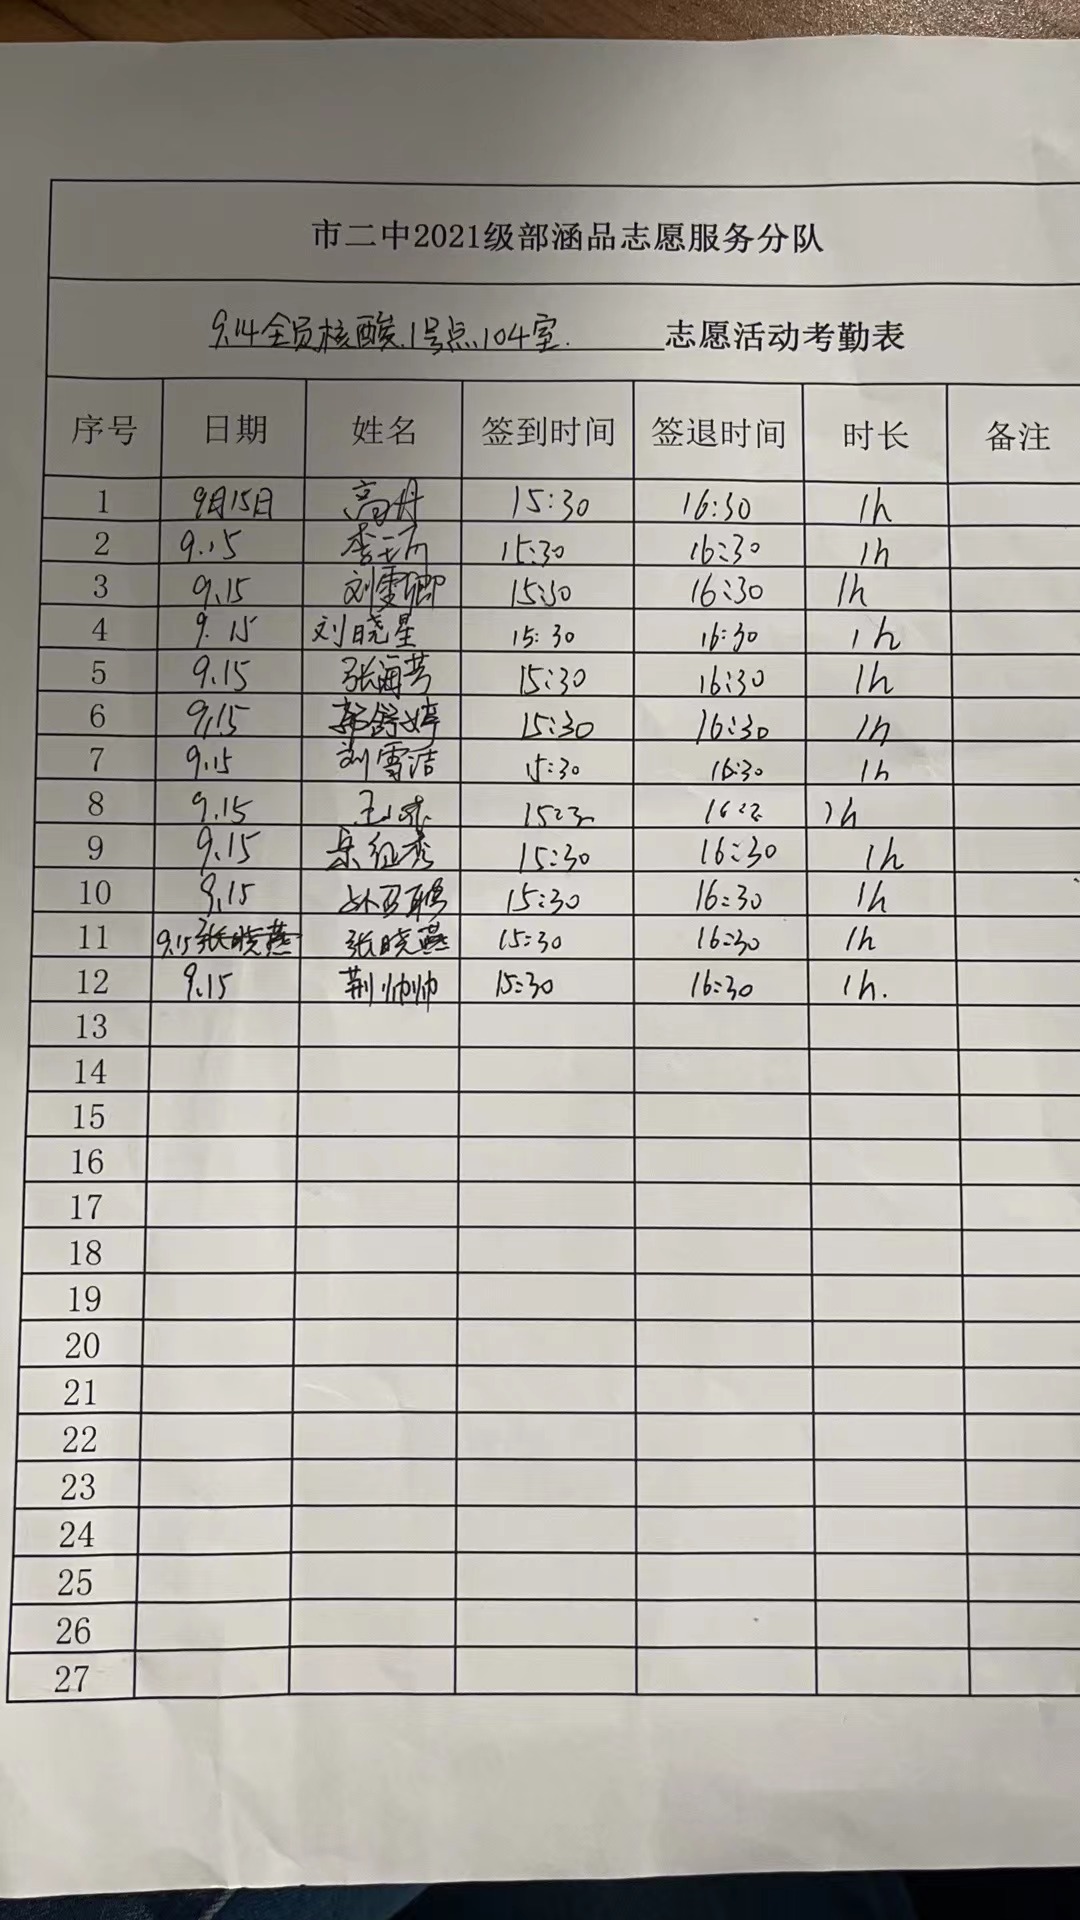 市二中2021级部涵品志愿服务分队
9.14全员核酸.1号点.104室. 志愿活动考勤表
序号 日期 姓名 签到时间 签退时间 时长 备注
1 9月15日 高丹 15:30 16:30 1h
2 9.15 15:30 16:30 1h
3 9.15 刘雯卿 15:30 16:30 1h
4 9.15 刘晓星 15:30 16:30 1h
5 9.15 张海芳 15:30 16:30 1h
6 9.15 郭舒婷 15:30 16:30 1h
7 9.15 刘雪洁 15:30 16:30 1h
8 9.15 15:30 16:30 1h
9 9.15 15:30 16:30 1h
10 9.15 15:30 16:30 1h
11 9.15 张晓燕 张晓燕 15:30 16:30 1h
12 9.15 荆帅帅 15:30 16:30 1h.
13
14
15
16
17
18
19
20
21
22
23
24
25
26
27